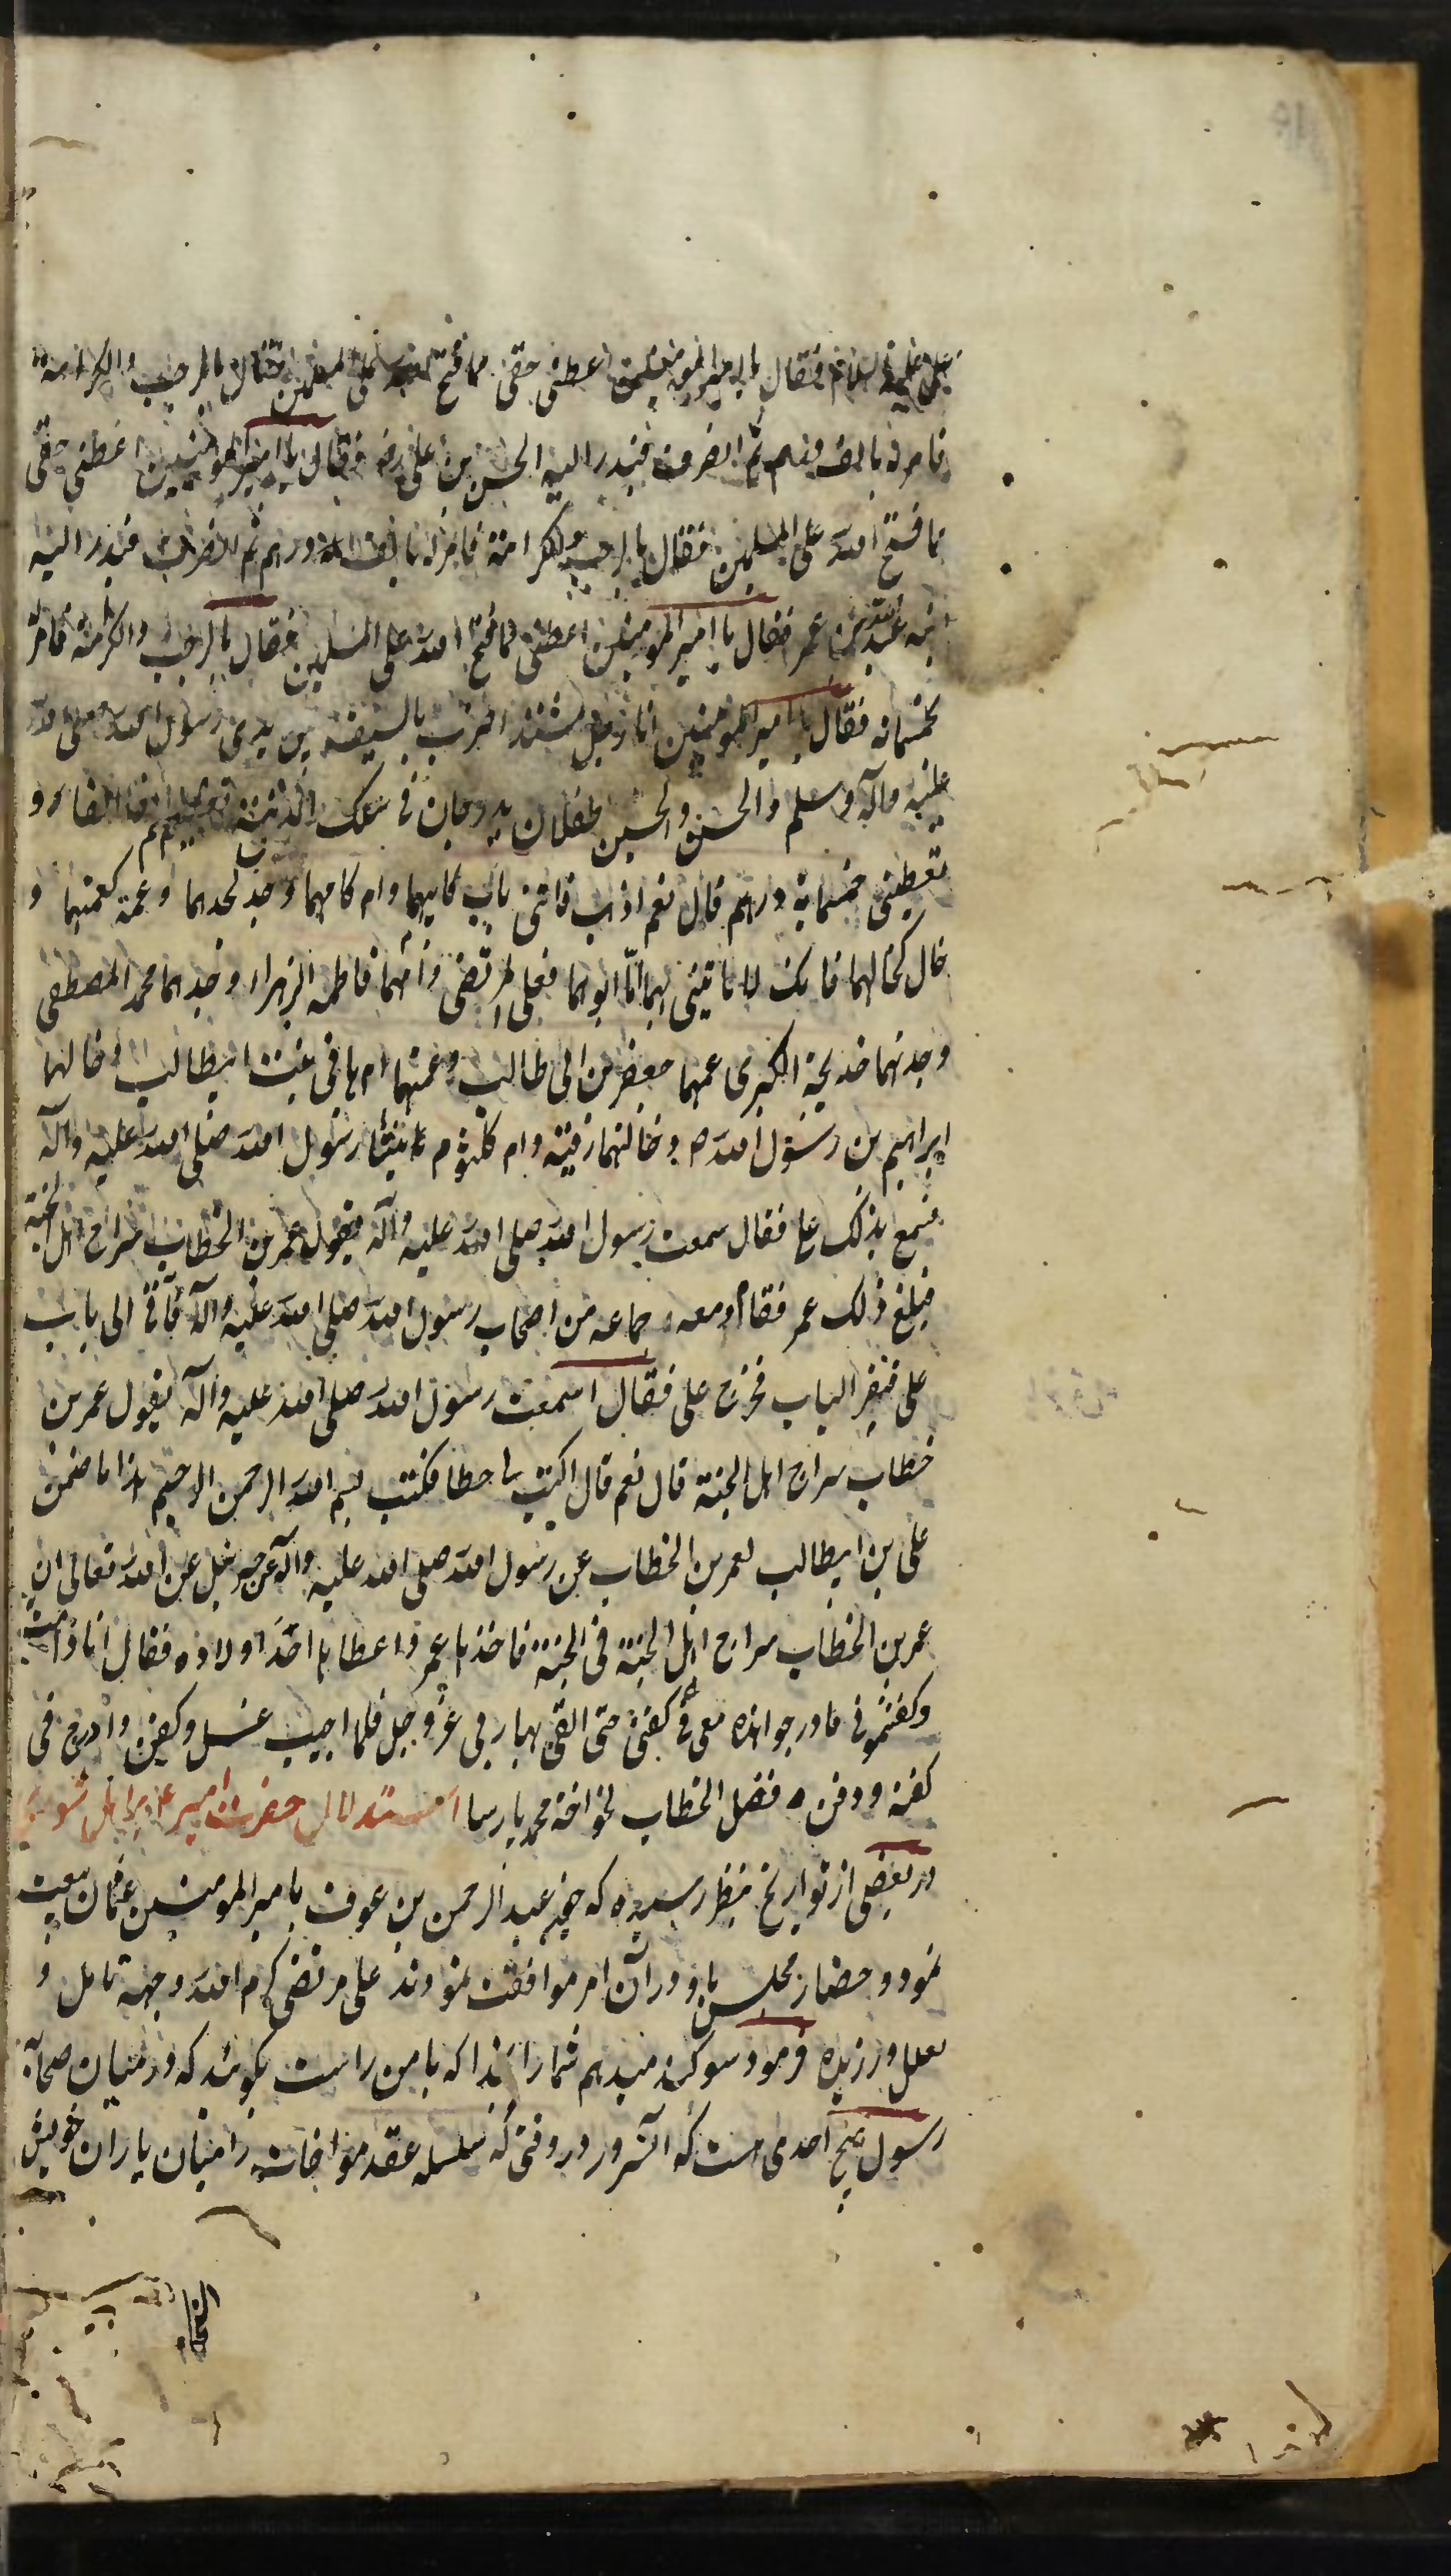 علی علیه السلام فقال یا امیر المومنین اعطنی حقی مما فتح الله علی المسلمین فقال بالرحب والکرامة
فامر له بالف درهم ثم انصرف فبدر الیه الحسین بن علی رضه فقال یا امیر المومنین اعطنی حقی
مما فتح الله علی المسلمین فقال بالرحب والکرامة فامر له بالف درهم ثم انصرف فبدر الیه
ابنه عبدالله بن عمر فقال یا امیر المومنین اعطنی مما فتح الله علی المسلمین فقال بالرحب والکرامة فامر له
بخمسمائه فقال یا امیر المومنین انا رجل مشتد اضرب بالسیف بین یدی رسول الله صلی الله
علیه وآله وسلم والحسن والحسین طفلان یدرجان فی سکک المدینة تعطیهم الفا الفا و
تعطینی خمسمایة درهم قال نعم اذهب فأتنی باب کابیهما وام کامهما وجد کجدهما وعمة کعمتهما و
خال کخالهما فانک لا تاتینی بهما اما ابوهما فعلی المرتضی وامهما فاطمه الزهراء وجدهما محمد المصطفی
وجدتهما خدیجة الکبری عمهما جعفر بن ابی طالب وعمتهما ام هانی بنت ابیطالب وخالهما
ابراهیم بن رسول الله ص وخالتهما رقیة وام کلثوم بنتا رسول الله صلی الله علیه وآله
فسمع بذلک علی فقال سمعت رسول الله صلی الله علیه وآله یقول عمر بن الخطاب سراج اهل الجنة
فبلغ ذلک عمر فقام ومعه جماعه من اصحاب رسول الله صلی الله علیه وآله فاتی الی باب
علی فنقر الباب فخرج علی فقال اسمعت رسول الله صلی الله علیه وآله یقول عمر بن
خطاب سراج اهل الجنة قال نعم قال اکتب لی خطا فکتب بسم الله الرحمن الرحیم هذا ما ضمن
علی بن ابیطالب لعمر بن الخطاب عن رسول الله صلی الله علیه وآله عن جبرئیل عن الله تعالی ان
عمر بن الخطاب سراج اهل الجنة فی الجنة فاخذها عمر واعطاها احد اولاده فقال اذا مت
وکفنتمونی فادرجوا هذه معی فی کفنی حتی القی بها ربی عز وجل فلما اصیب غسل وکفن وادرج فی
کفنه ودفن ه فصل الخطاب لخواجه محمد پارسا استدلال حضرت امیر ع بر اهل شوری
در بعضی از تواریخ بنظر رسیده که چون عبد الرحمن بن عوف با امیر المومنین عثمان بیعت
نمود و حضار مجلس با او در آن امر موافقت نمودند علی مرتضی کرم الله وجهه تامل و
تعلل ورزیده فرمود سوگند میدهم شما را بخدا که با من راست بگوئید که در میان صحابه
رسول هیچ احدی هست که آنسرور در وقتی که سلسله عقد مواخات را میان یاران خویش